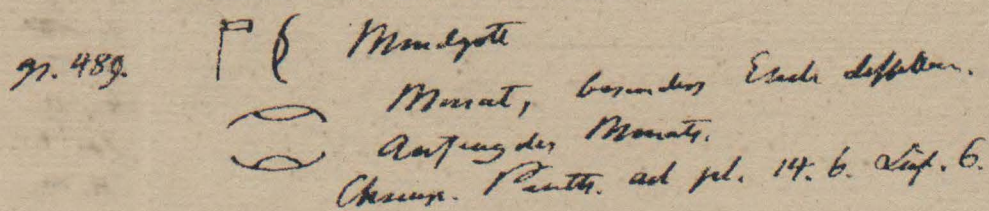 gr. 489. Mondgott
Monat, besonders Ende desselben.
Anfang des Monats.
Champ. Panth. ad pl. 14. 6. 6.